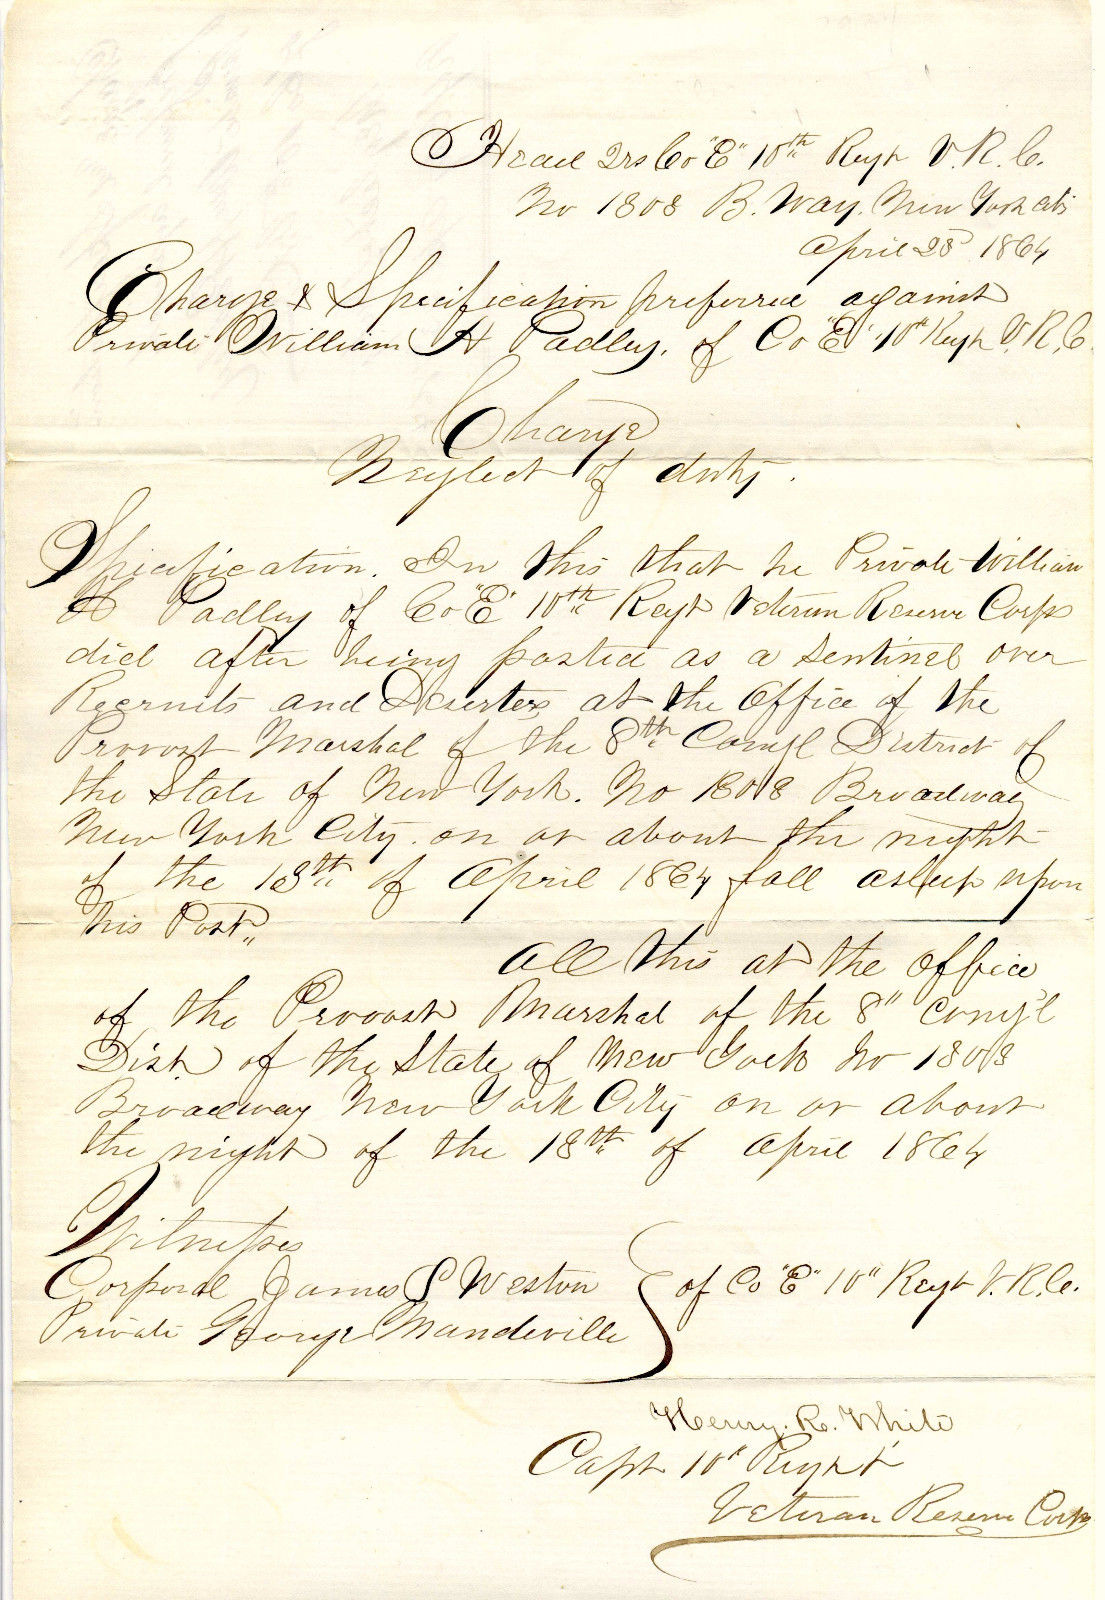 Head Qrs Co "E" 10th Regt V. R. C.
No 1808 B. Way. New York City
April 28 1864
Charge & Specification preferred against
Private William H Padley. of Co "E" 10th Regt V. R. C.
Charge
Neglect of duty.
Specification. In this that he Private William
H Padley of Co "E" 10th Regt Veteran Reserve Corps
did after being posted as a Sentinel over
Recruits and Deserters at the Office of the
Provost Marshal of the 8th Congl District of
the State of New York. No 1808 Broadway
New York City. on or about the night
of the 18th of April 1864 fall asleep upon
his Post"
All this at the office
of the Provost Marshal of the 8" Cong'l
Dist. of the State of New York No 1808
Broadway New York City on or about
the night of the 18th of April 1864
Witnesses
Corporal James S Weston
Private George Mandeville
of Co "E" 10" Regt V. R. C.
Henry. R. White
Capt 10" Regt
Veteran Reserve Corps